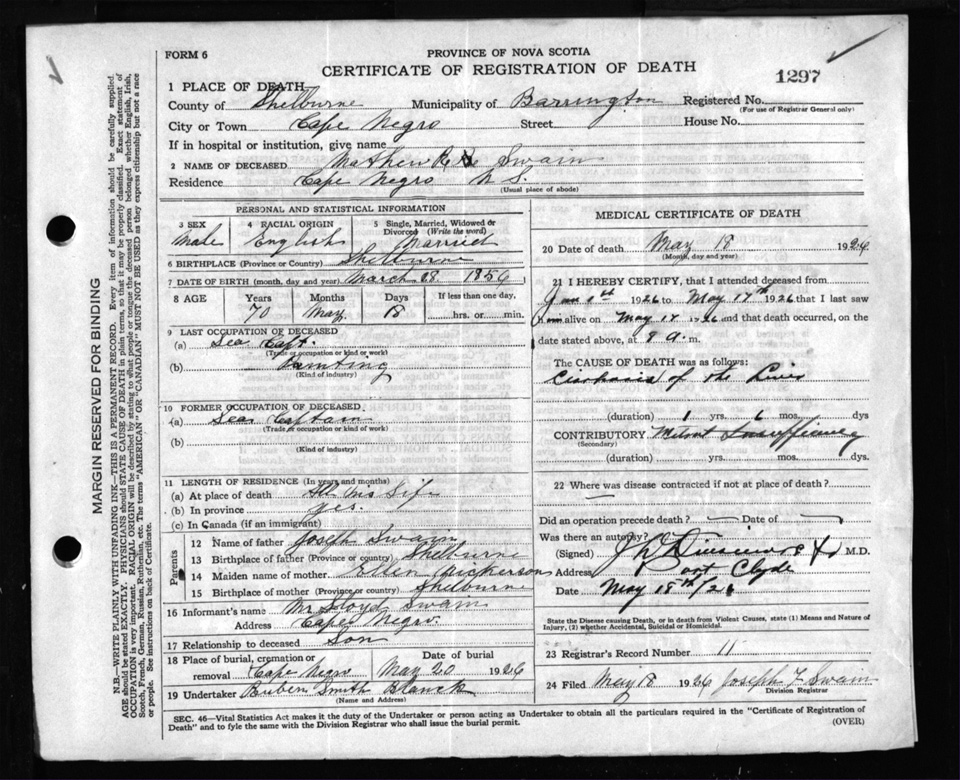 FORM 6
PROVINCE OF NOVA SCOTIA
CERTIFICATE OF REGISTRATION OF DEATH
1297
1 PLACE OF DEATH
County of Shelburne Municipality of Barrington Registered No.
(For use of Registrar General only)
City or Town Cape Negro Street House No.
If in hospital or institution, give name
2 NAME OF DECEASED Mathew Swain
Residence Cape Negro N S.
(Usual place of abode)
PERSONAL AND STATISTICAL INFORMATION
3 SEX 4 RACIAL ORIGIN 5 Single, Married, Widowed or Divorced (Write the word)
Male English Married
6 BIRTHPLACE (Province or Country) Shelburne
7 DATE OF BIRTH (month, day and year) March 18. 1856
8 AGE Years Months Days If less than one day,
70 May 18 hrs. or min.
9 LAST OCCUPATION OF DECEASED
(a) Sea Capt.
(Trade or occupation or kind or work)
(b)
(Kind of industry)
10 FORMER OCCUPATION OF DECEASED
(a) Sea Captain
(Trade or occupation or kind of work)
(b)
(Kind of industry)
11 LENGTH OF RESIDENCE (In years and months)
(a) At place of death His Life
(b) In province yes.
(c) In Canada (if an immigrant)
Parents
12 Name of father Joseph Swain
13 Birthplace of father (Province or country) Shelburne
14 Maiden name of mother Ellen Nickerson
15 Birthplace of mother (Province or country) Shelburne
16 Informant's name Mr Lloyd Swain
Address Cape Negro.
17 Relationship to deceased Son
18 Place of burial, cremation or removal Cape Negro Date of burial May 20 1926
19 Undertaker Ruben Smith
(Name and Address)
MEDICAL CERTIFICATE OF DEATH
20 Date of death May 18 1926
(Month, day and year)
21 I HEREBY CERTIFY, that I attended deceased from
Jan 1st 1926 to May 17th 1926 that I last saw
him alive on May 17 1926 and that death occurred, on
date stated above, at 9 a. m.
The CAUSE OF DEATH was as follows:
Cirrhosis of the Liver
(duration) 1 yrs. 6 mos. dys
CONTRIBUTORY Mitral Insufficiency
(Secondary)
(duration) yrs. mos. dys.
22 Where was disease contracted if not at place of death?
Did an operation precede death? Date of
Was there an autopsy?
(Signed) M.D.
Address Port Clyde
Date May 18th/26
State the Disease causing Death, or in death from Violent Causes, state (1) Means and Nature of Injury, (2) whether Accidental, Suicidal or Homicidal.
23 Registrar's Record Number 11
24 Filed May 18 1926 Joseph F Swain
Division Registrar
SEC. 46—Vital Statistics Act makes it the duty of the Undertaker or person acting as Undertaker to obtain all the particulars required in the "Certificate of Registration of
Death" and to fyle the same with the Division Registrar who shall issue the burial permit.
(OVER)
MARGIN RESERVED FOR BINDING
N.B.—WRITE PLAINLY WITH UNFADING INK—THIS IS A PERMANENT RECORD. Every item of information should be carefully supplied.
AGE should be stated EXACTLY. PHYSICIANS should STATE CAUSE OF DEATH in plain terms, so that it may be properly classified. Exact statement of
OCCUPATION is very important. RACIAL ORIGIN will be described by stating to what people or tongue the deceased person belonged whether English, Irish,
Scotch, French, German, Russian, Ruthenian, etc. The terms "AMERICAN" or "CANADIAN" MUST NOT BE USED as they express citizenship but not a race
or people. See instructions on back of Certificate.